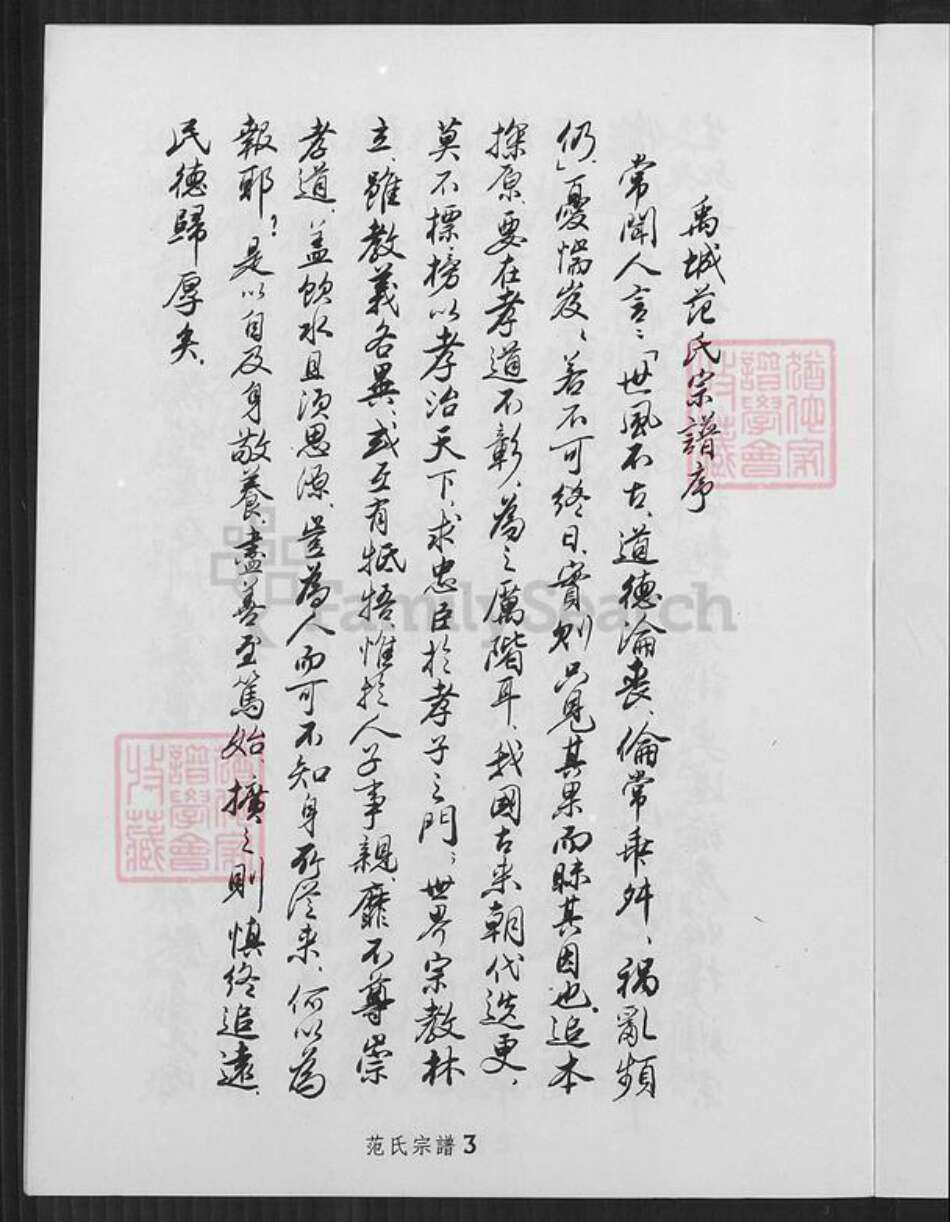 禹城范氏宗譜序
常聞人言:「世風不古、道德淪喪、倫常乖舛、禍亂頻
仍」憂惴岌岌、若不可終日、實則只見其果而昧其因也、追本
探原、要在孝道不彰、為之厲階耳、我國古來朝代迭更、
莫不標榜以孝治天下、求忠臣於孝子之門、世界宗教林
立、雖教義各異、或互有牴牾惟於人子事親、靡不尊崇
孝道、蓋飲水且須思源、豈為人而可不知身所從來、何以為
報耶?是以自及身敬養、盡善至篤始、擴之則慎終追遠、
民德歸厚矣、
猶他家譜學會特藏
FamilySearch
猶他家譜學會特藏
范氏宗譜 3